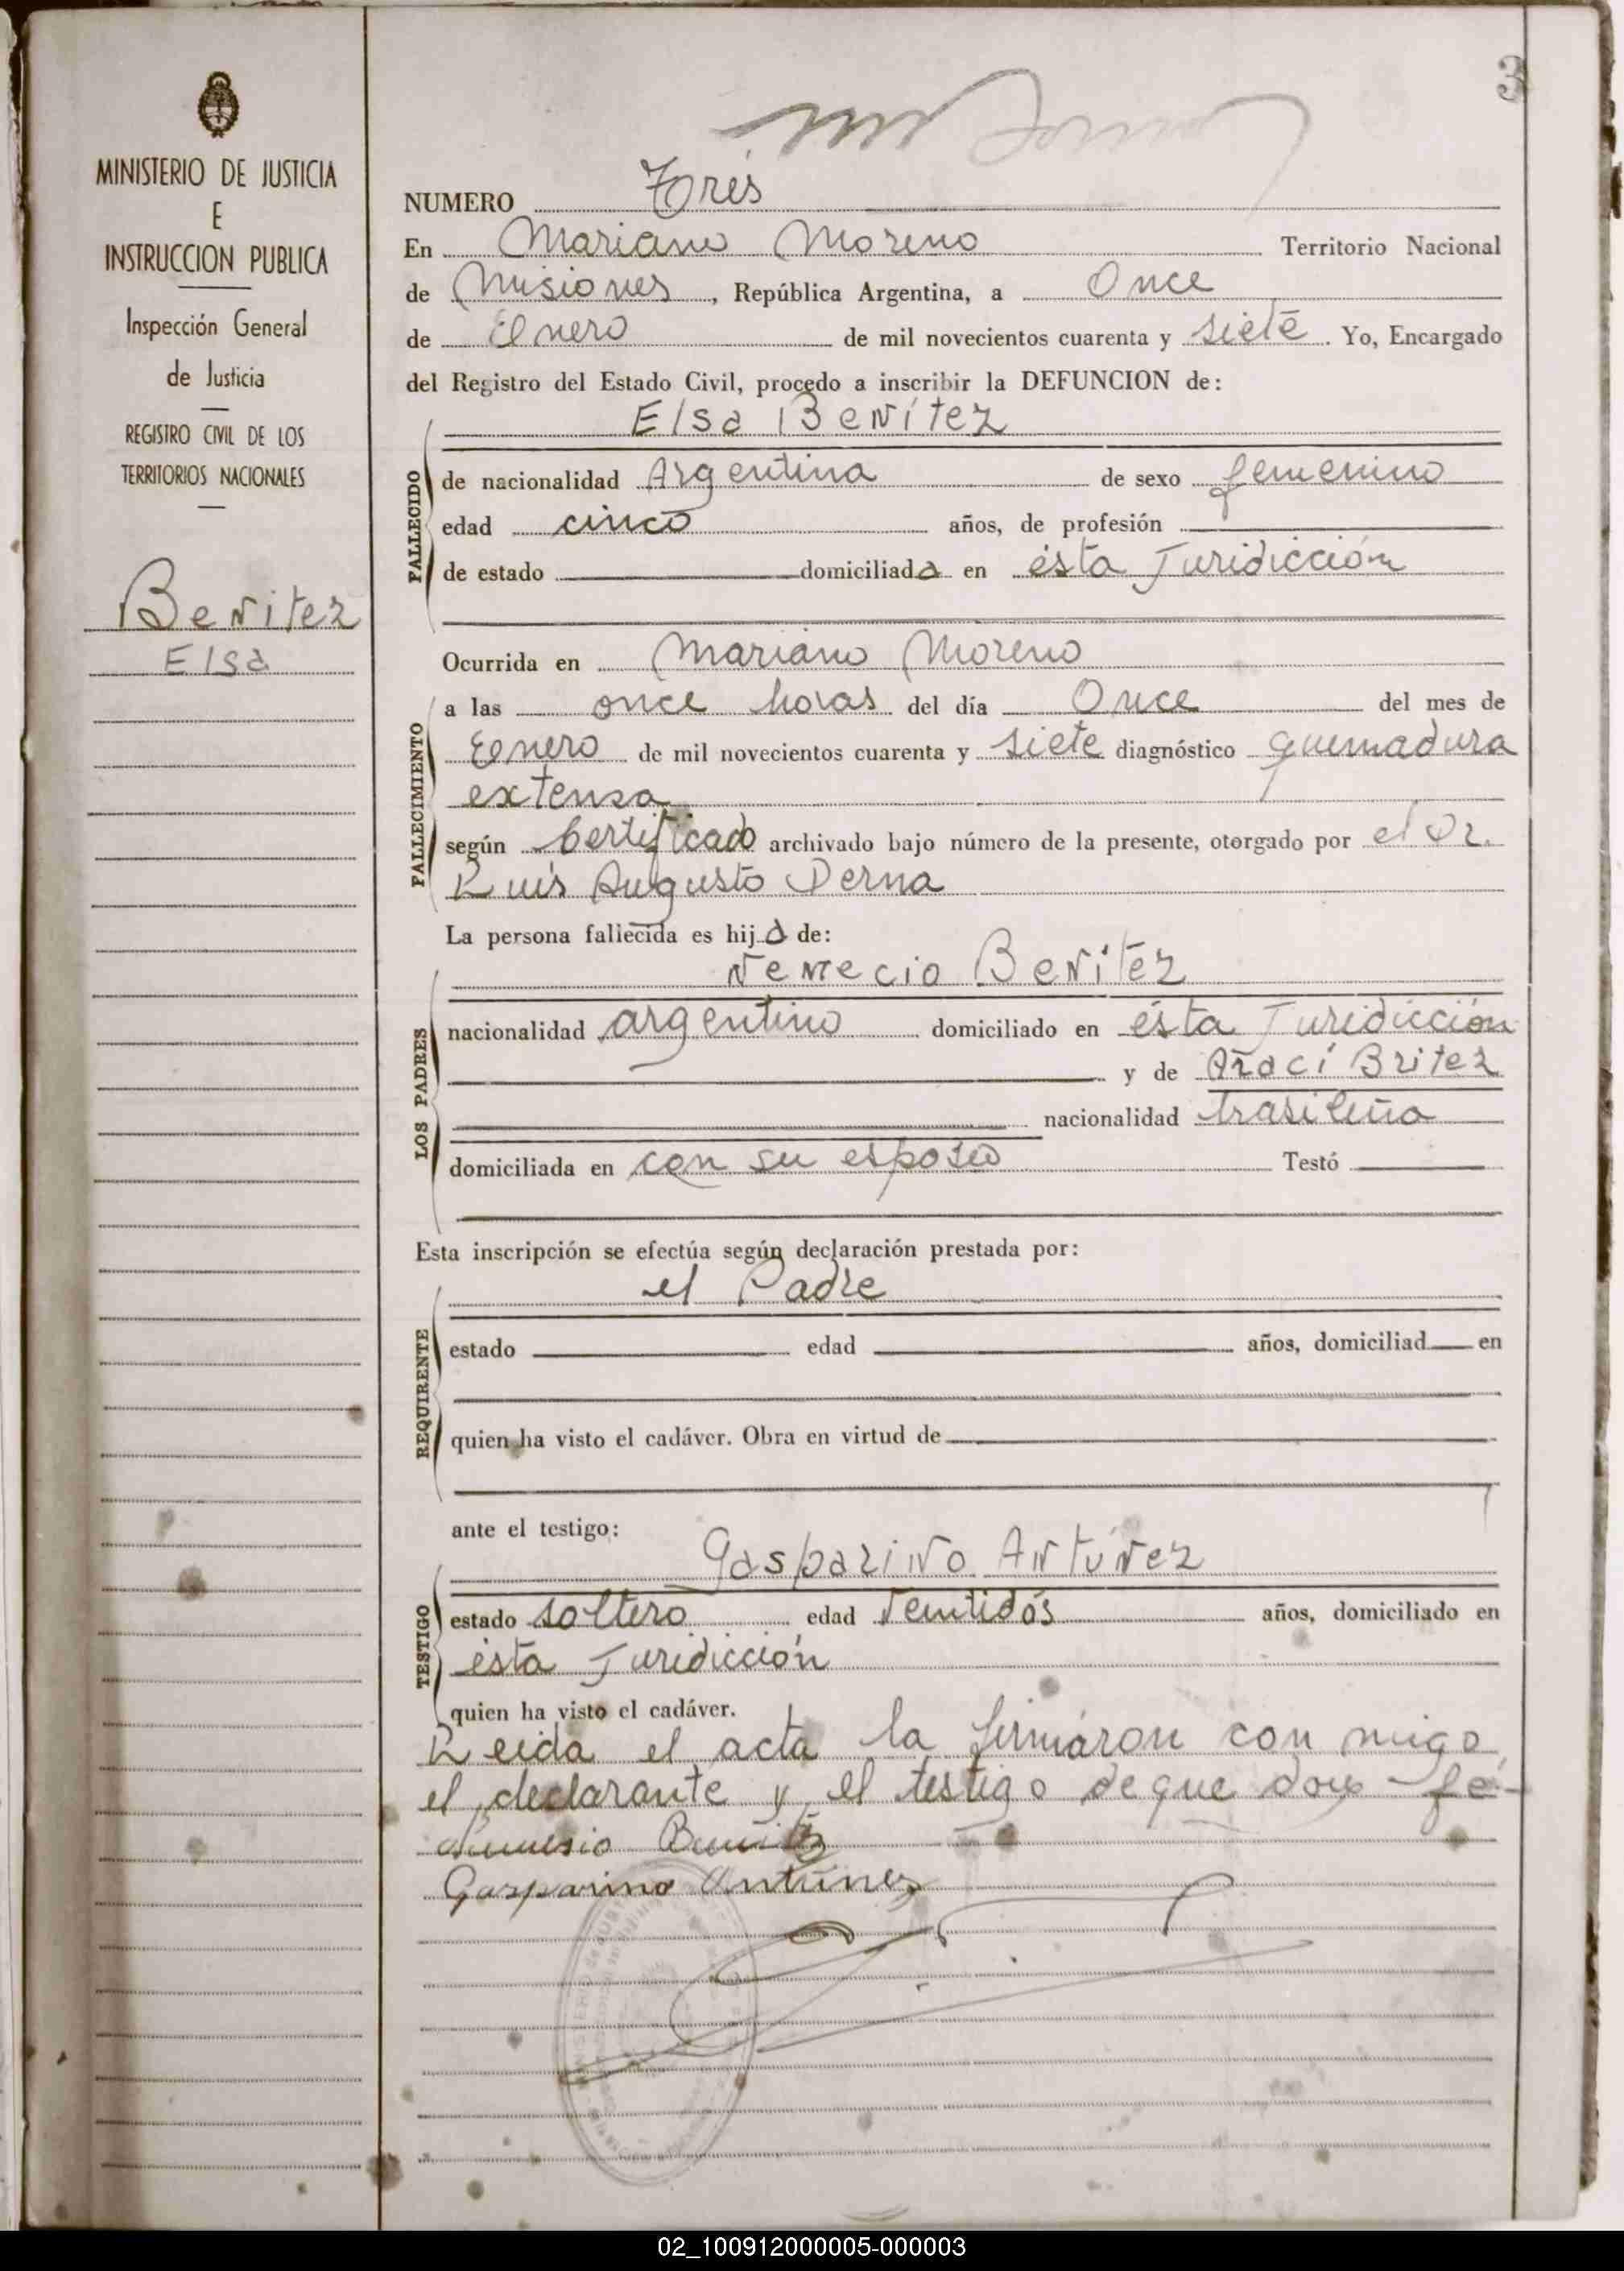 3
MINISTERIO DE JUSTICIA
E
INSTRUCCION PUBLICA
Inspección General
de Justicia
REGISTRO CIVIL DE LOS
TERRITORIOS NACIONALES
Benitez
Elsa
NUMERO Tres
En Mariano Moreno Territorio Nacional
de Misiones, República Argentina, a Once
de Enero de mil novecientos cuarenta y siete. Yo, Encargado
del Registro del Estado Civil, procedo a inscribir la DEFUNCION de:
Elsa Benítez
FALLECIDO
de nacionalidad Argentina de sexo femenino
edad cinco años, de profesión
de estado domiciliada en ésta Juridicción
Ocurrida en Mariano Moreno
FALLECIMIENTO
a las once horas del día Once del mes de
Enero de mil novecientos cuarenta y siete diagnóstico quemadura
extensa
según Certificado archivado bajo número de la presente, otorgado por el Dr.
Luis Augusto Derna
La persona fallecida es hija de:
Nemecio Benítez
LOS PADRES
nacionalidad argentino domiciliado en ésta Juridicción
y de Añací Britez
nacionalidad brasileña
domiciliada en con su esposo Testó
Esta inscripción se efectúa según declaración prestada por:
el Padre
REQUIRENTE
estado edad años, domiciliad en
quien ha visto el cadáver. Obra en virtud de
ante el testigo:
Gasparino Antúnez
TESTIGO
estado soltero edad Veintidós años, domiciliado en
ésta Juridicción
quien ha visto el cadáver.
Leida el acta la firmáron con migo
el declarante y el testigo de que doy fé-
Nemesio Benitez
Gasparino Antúnez
02_100912000005-000003